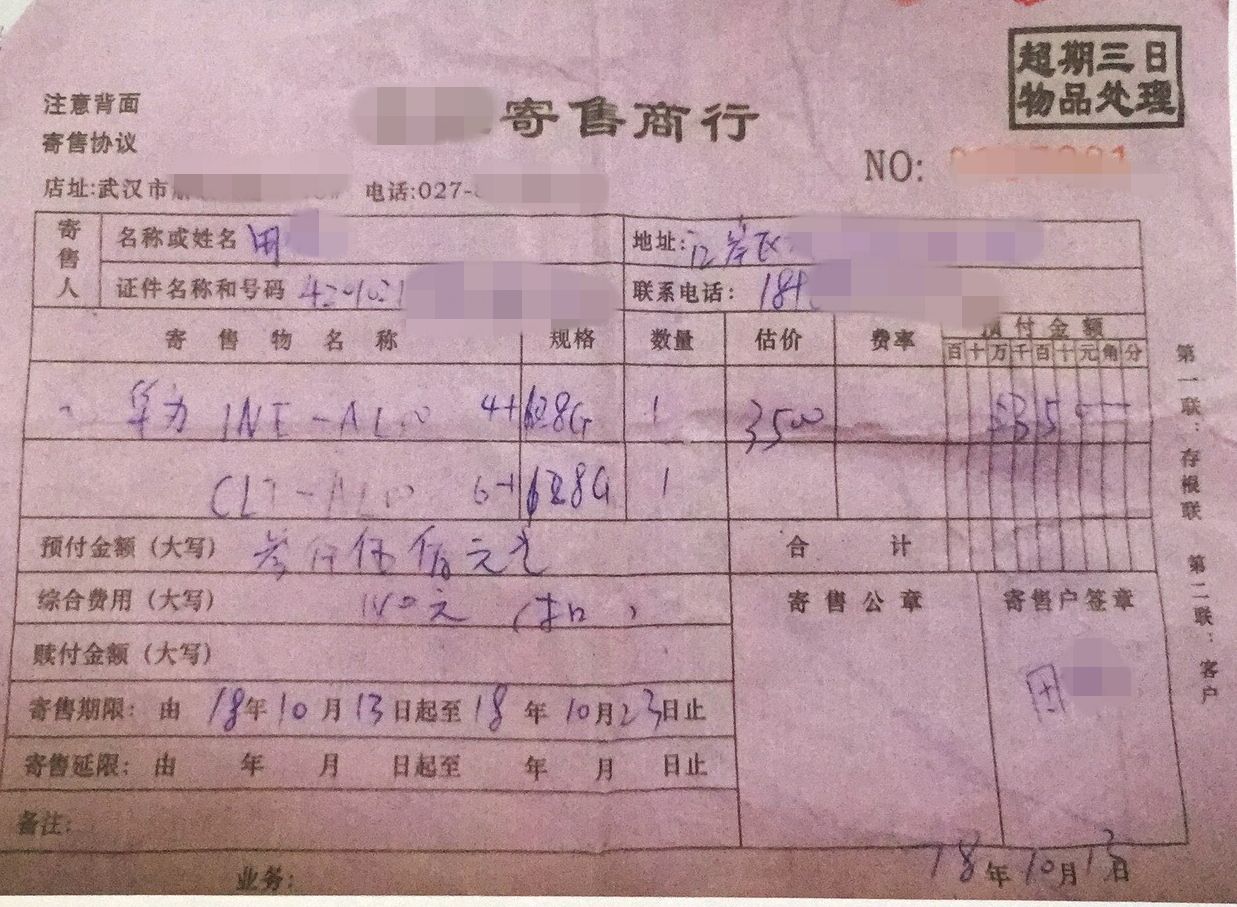 超期三日
物品处理
注意背面
寄售协议
寄售商行
NO:
店址:武汉市 电话:027-
寄售人
名称或姓名 地址:江岸区
证件名称和号码 4201021 联系电话: 18
寄售物名称 规格 数量 估价 费率 预付金额
百十万千百十元角分
华为 INE-AL00 4+128G 1 3500
CLT-AL00 6+128G 1
预付金额（大写） 叁仟伍佰元 合计
综合费用（大写） 140元 （扣） 寄售公章 寄售户签章
赎付金额（大写）
寄售期限: 由 18年10月13日起至18年10月23日止
寄售延限: 由 年 月 日起至 年 月 日止
备注:
18年10月13日
业务:
第一联:存根联 第二联:客户